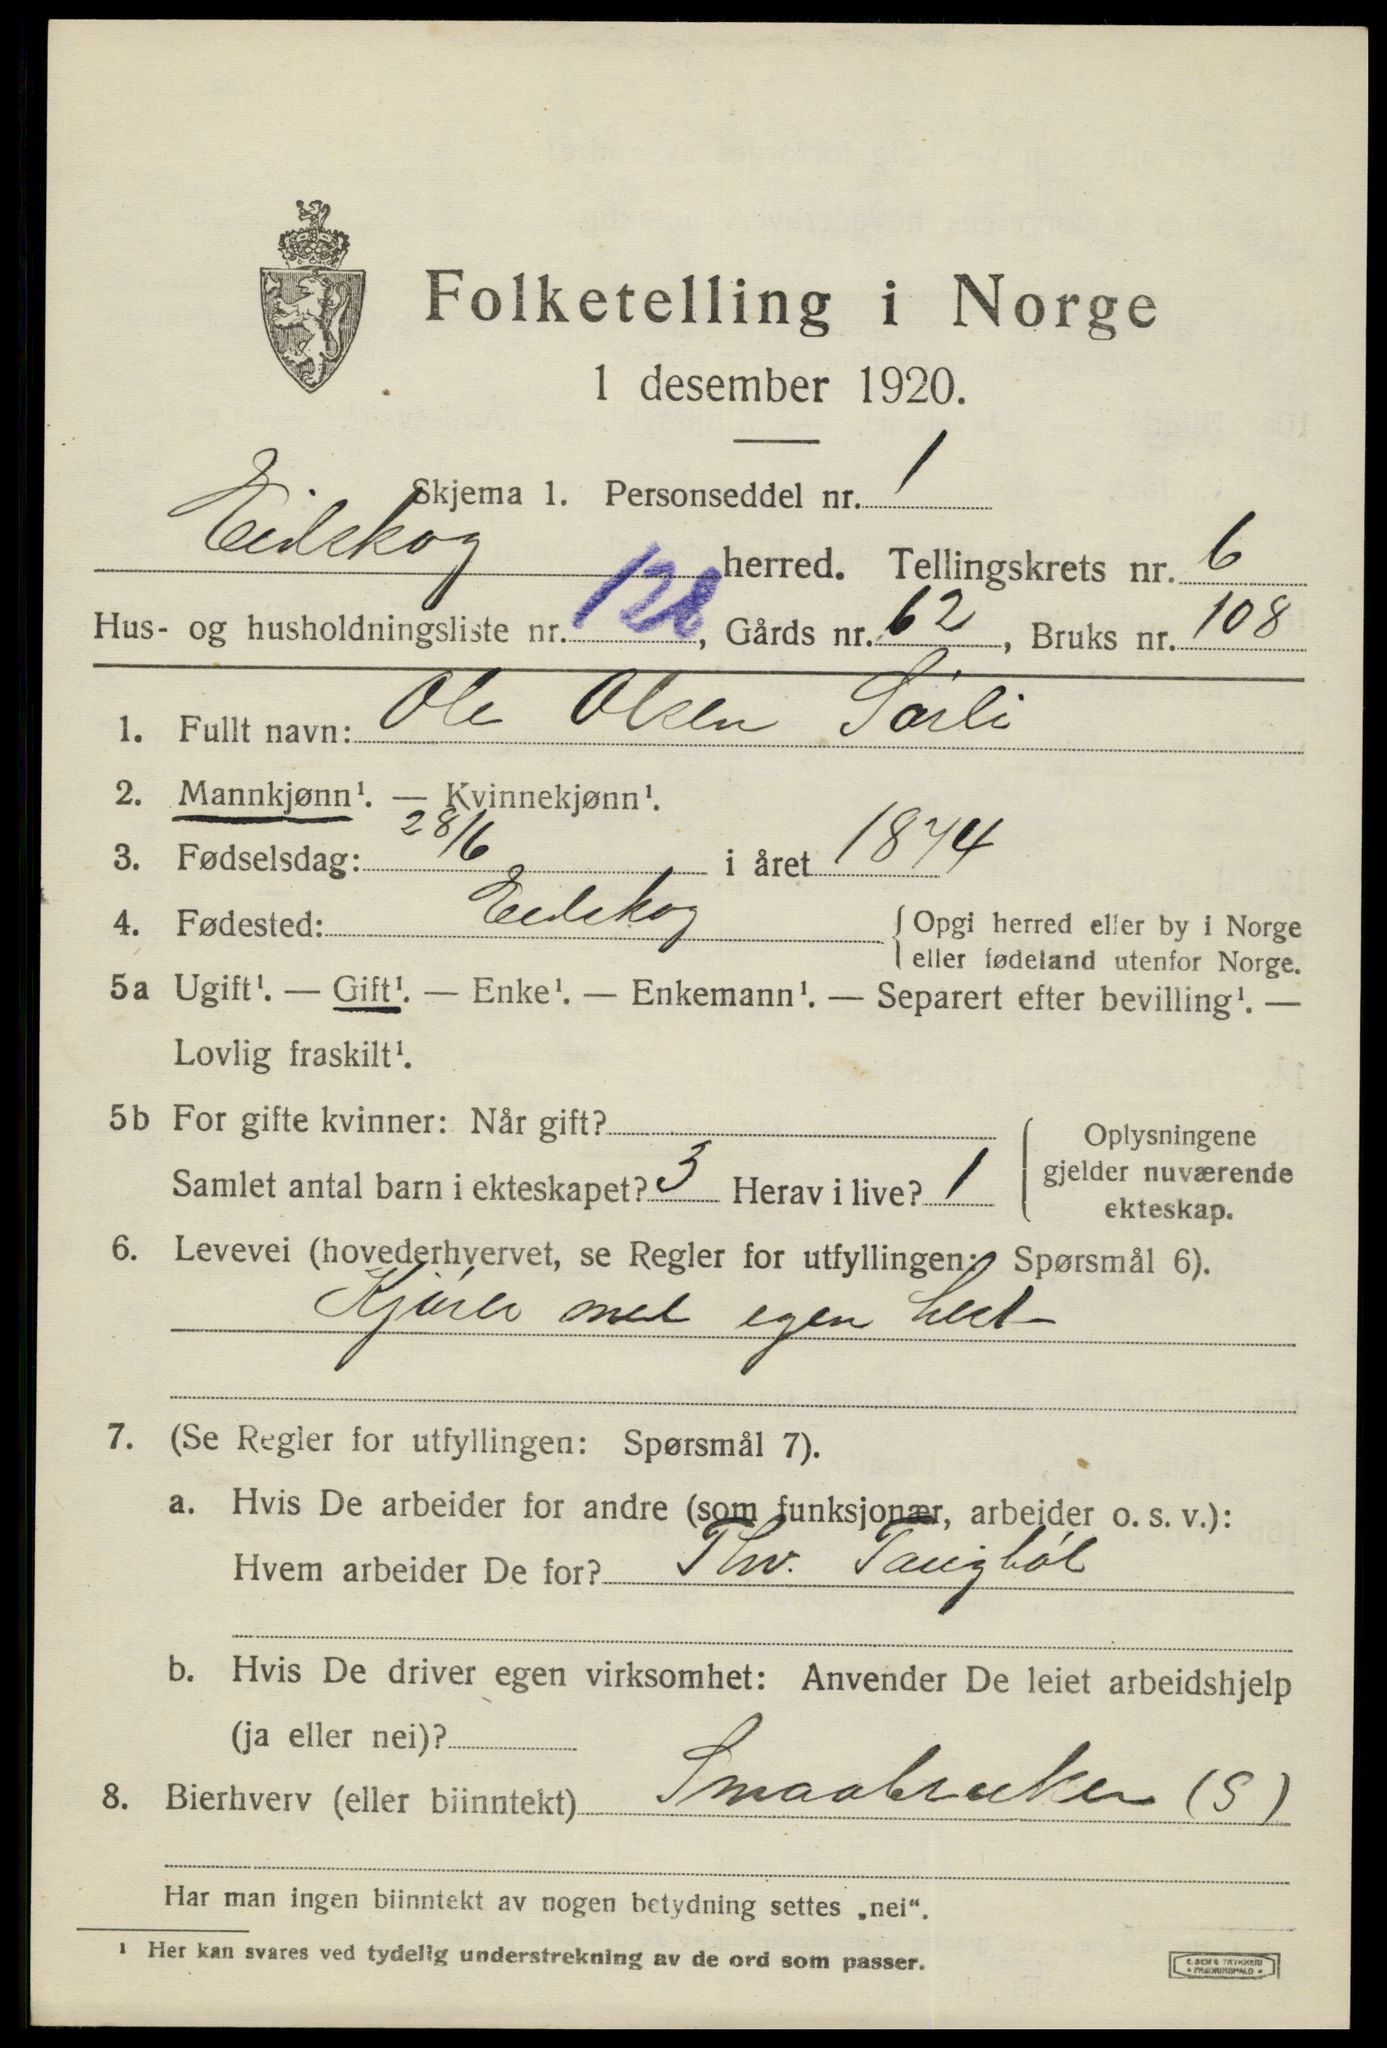 Folketelling i Norge
1 desember 1920.
Skjema 1. Personseddel nr. 1
Eidskog herred. Tellingskrets nr. 6
Hus- og husholdningsliste nr. 122, Gårds nr. 62, Bruks nr. 108
1. Fullt navn: Ole Olsen Sörli
2. Mannkjønn¹. — Kvinnekjønn¹.
3. Fødselsdag: 28/6 i året 1874
4. Fødested: Eidskog { Opgi herred eller by i Norge
eller fødeland utenfor Norge.
5a Ugift¹. — Gift¹. — Enke¹. — Enkemann¹. — Separert efter bevilling¹. —
Lovlig fraskilt¹.
5b For gifte kvinner: Når gift?
Samlet antal barn i ekteskapet? 3 Herav i live? 1
Oplysningene
gjelder nuværende
ekteskap.
6. Levevei (hovederhvervet, se Regler for utfyllingen: Spørsmål 6).
Kjører med egen hest
7. (Se Regler for utfyllingen: Spørsmål 7).
a. Hvis De arbeider for andre (som funksjonær, arbeider o. s. v.):
Hvem arbeider De for? Thv. Tangböl
b. Hvis De driver egen virksomhet: Anvender De leiet arbeidshjelp
(ja eller nei)?
8. Bierhverv (eller biinntekt) Smaabruker (S)
Har man ingen biinntekt av nogen betydning settes „nei“.
¹ Her kan svares ved tydelig understrekning av de ord som passer.
E. SEM'S TRYKKERI
FREDRIKSHALD